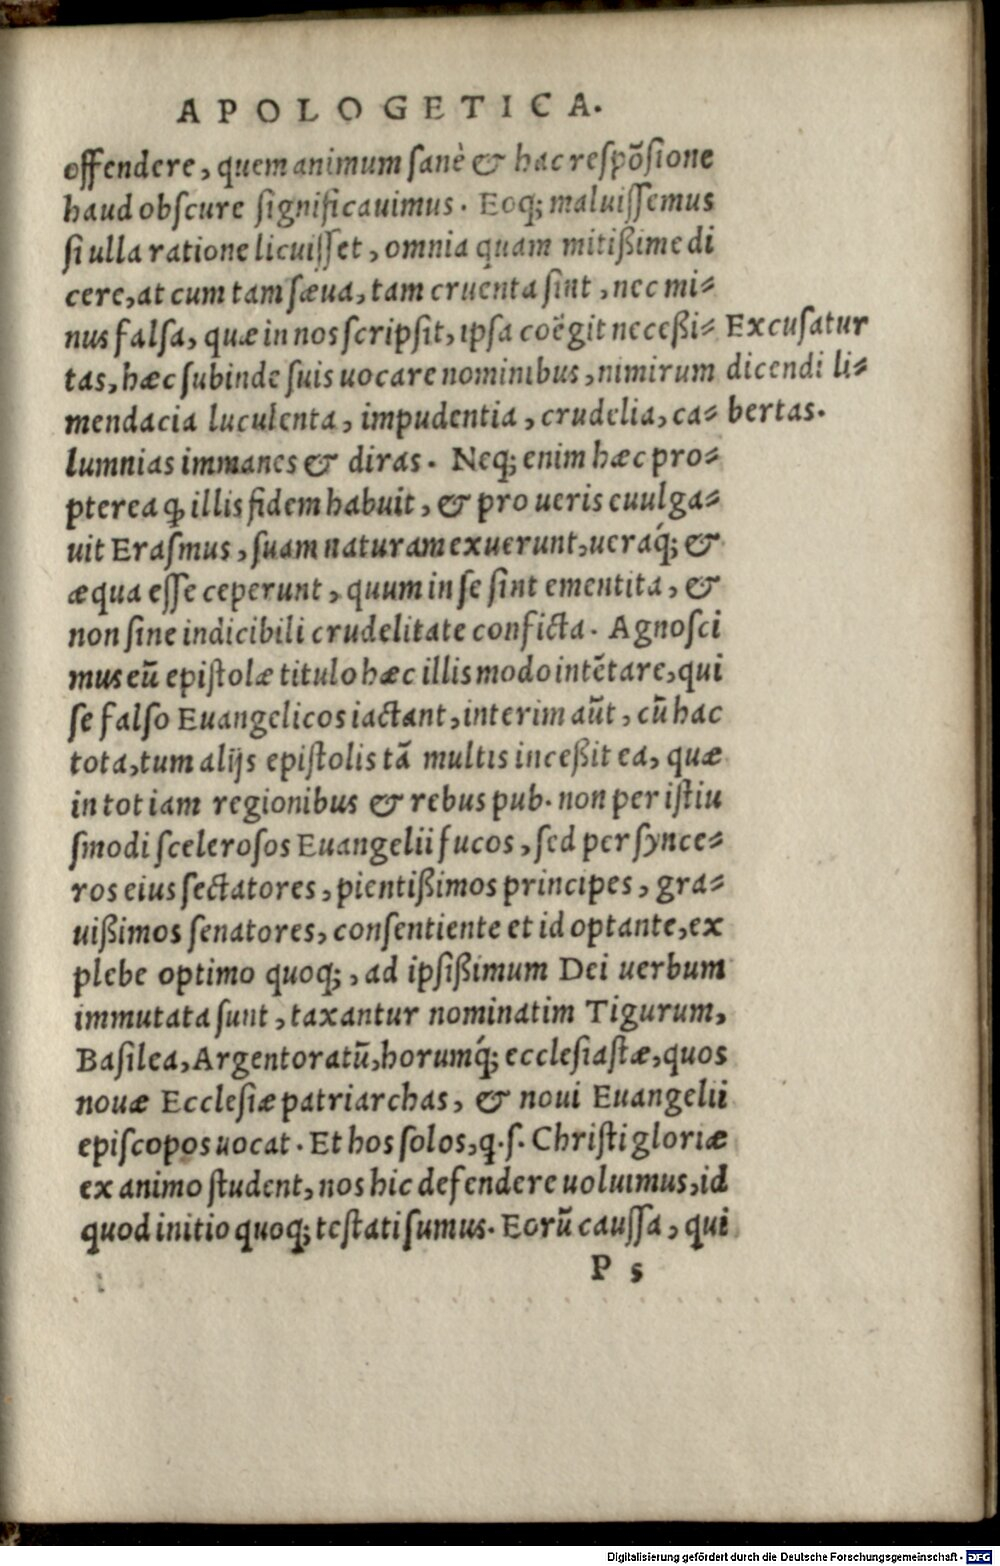 APOLOGETICA.
offendere, quem animum sanè & hac respõsione
haud obscure significauimus. Eoq; maluissemus
si ulla ratione licuisset, omnia quam mitißime di
cere, at cum tam sæua, tam cruenta sint, nec mi-
nus falsa, quæ in nos scripsit, ipsa coëgit neceßi-
tas, hæc subinde suis uocare nominibus, nimirum
mendacia luculenta, impudentia, crudelia, ca-
Excusatur
dicendi li-
bertas.
lumnias immanes & diras. Neq; enim hæc pro-
pterea ꝙ illis fidem habuit, & pro ueris euulga-
uit Erasmus, suam naturam exuerunt, ueraq́; &
æqua esse ceperunt, quum in se sint ementita, &
non sine indicibili crudelitate conficta. Agnosci
mus eũ epistolæ titulo hæc illis modo intẽtare, qui
se falso Euangelicos iactant, interim aũt, cũ hac
tota, tum alijs epistolis tã multis inceßit ea, quæ
in tot iam regionibus & rebus pub. non per istiu
smodi scelerosos Euangelii fucos, sed per synce-
ros eius sectatores, pientißimos principes, gra-
uißimos senatores, consentiente et id optante, ex
plebe optimo quoq;, ad ipsißimum Dei uerbum
immutata sunt, taxantur nominatim Tigurum,
Basilea, Argentoratũ, horumq́; ecclesiastæ, quos
nouæ Ecclesiæ patriarchas, & noui Euangelii
episcopos uocat. Et hos solos, q. s. Christi gloriæ
ex animo student, nos hic defendere uoluimus, id
quod initio quoq; testati sumus. Eorũ caussa, qui
P s
Digitalisierung gefördert durch die Deutsche Forschungsgemeinschaft - DFG